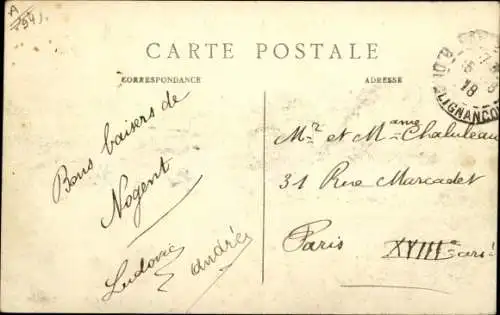 A
94
CARTE POSTALE
CORRESPONDANCE
ADRESSE
Bons baisers de
Nogent
Ludovic
André
Mr et Mame Chaluleau
31 Rue Marcadet
Paris XVIIIe arr
18
LIGNANCO